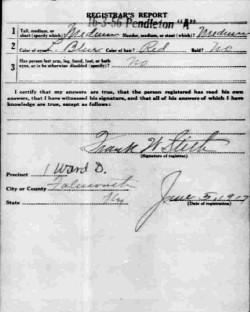 REGISTRAR'S REPORT
16-3-56 Pendleton "A"
1 Tall, medium, or short (specify which) Medium Slender, medium, or stout (which)? Medium
2 Color of eyes? L Blue Color of hair? Red Bald? No
3 Has person lost arm, leg, hand, foot, or both eyes, or is he otherwise disabled (specify)? No
I certify that my answers are true, that the person registered has read his own
answers, that I have witnessed his signature, and that all of his answers of which I have
knowledge are true, except as follows:
Frank W Stith
(Signature of registrar)
Precinct 1 Ward D.
City or County Falmouth
State Ky
June 5, 1917
(Date of registration)